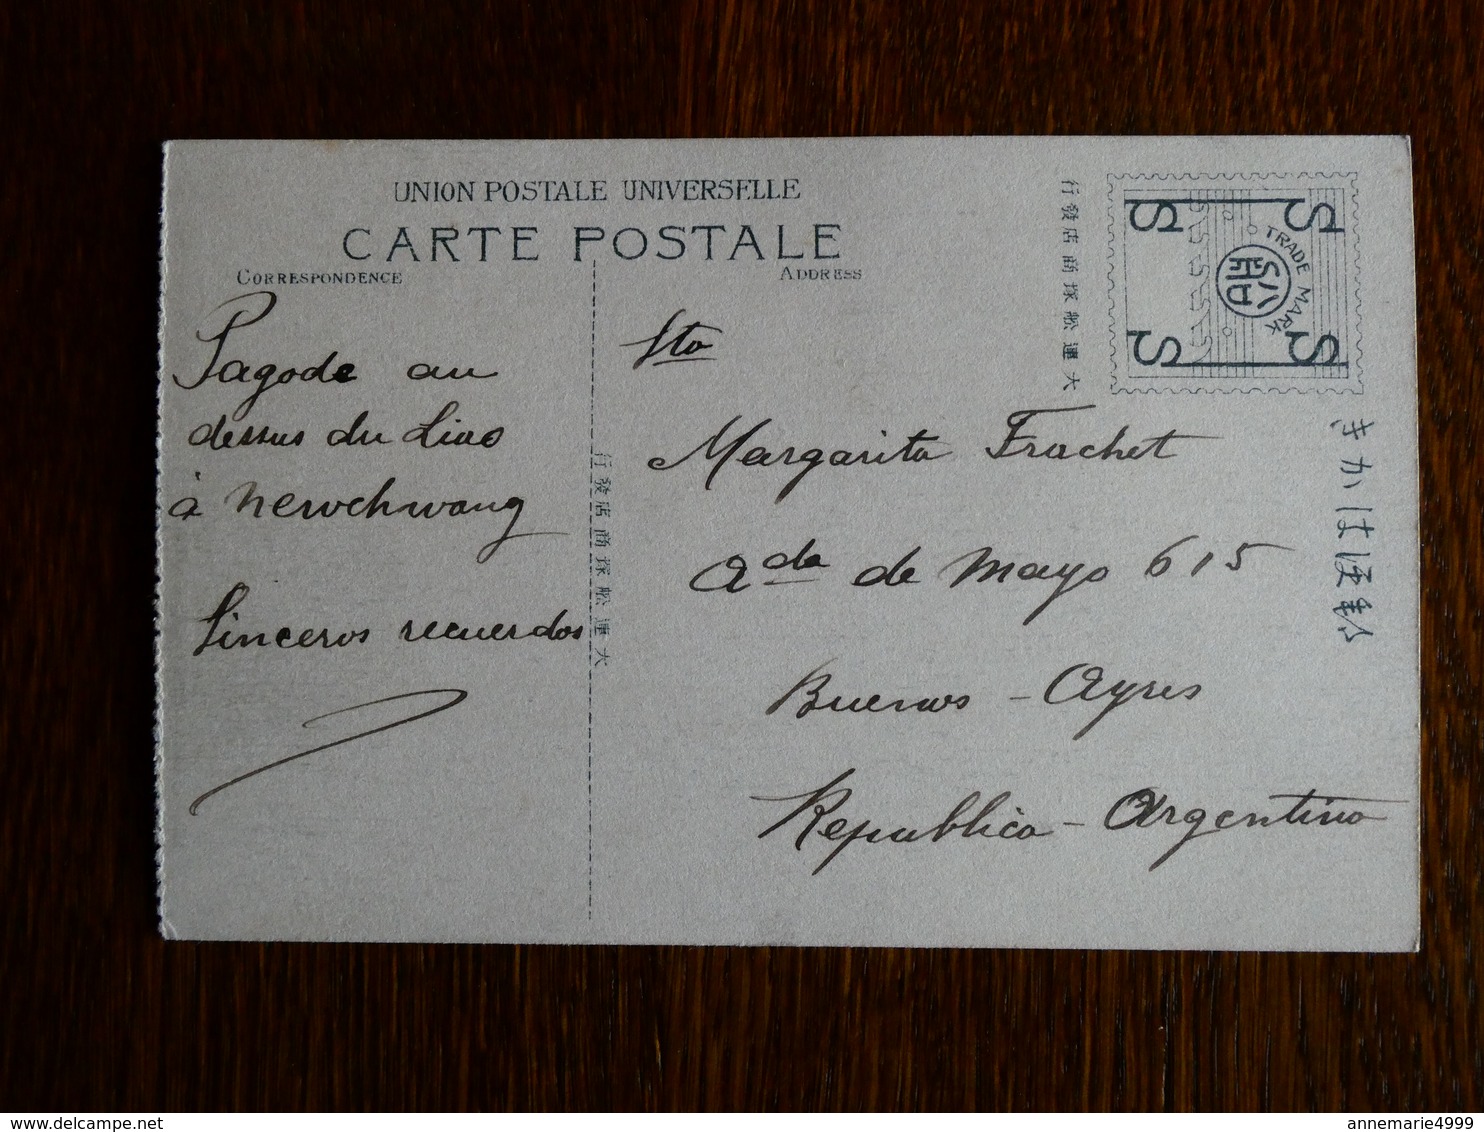 UNION POSTALE UNIVERSELLE
CARTE POSTALE
CORRESPONDENCE
ADDRESS
Pagode au
dessus du Liao
à Newchwang
Sinceros recuerdos
Sta
Margarita Frachet
Ada de Mayo 615
Buenos - Ayres
Republica - Argentina
TRADE MARK
S S
S S
行發店商塚舩連大
行發店商塚舩連大
きかは便郵
annemarie4999